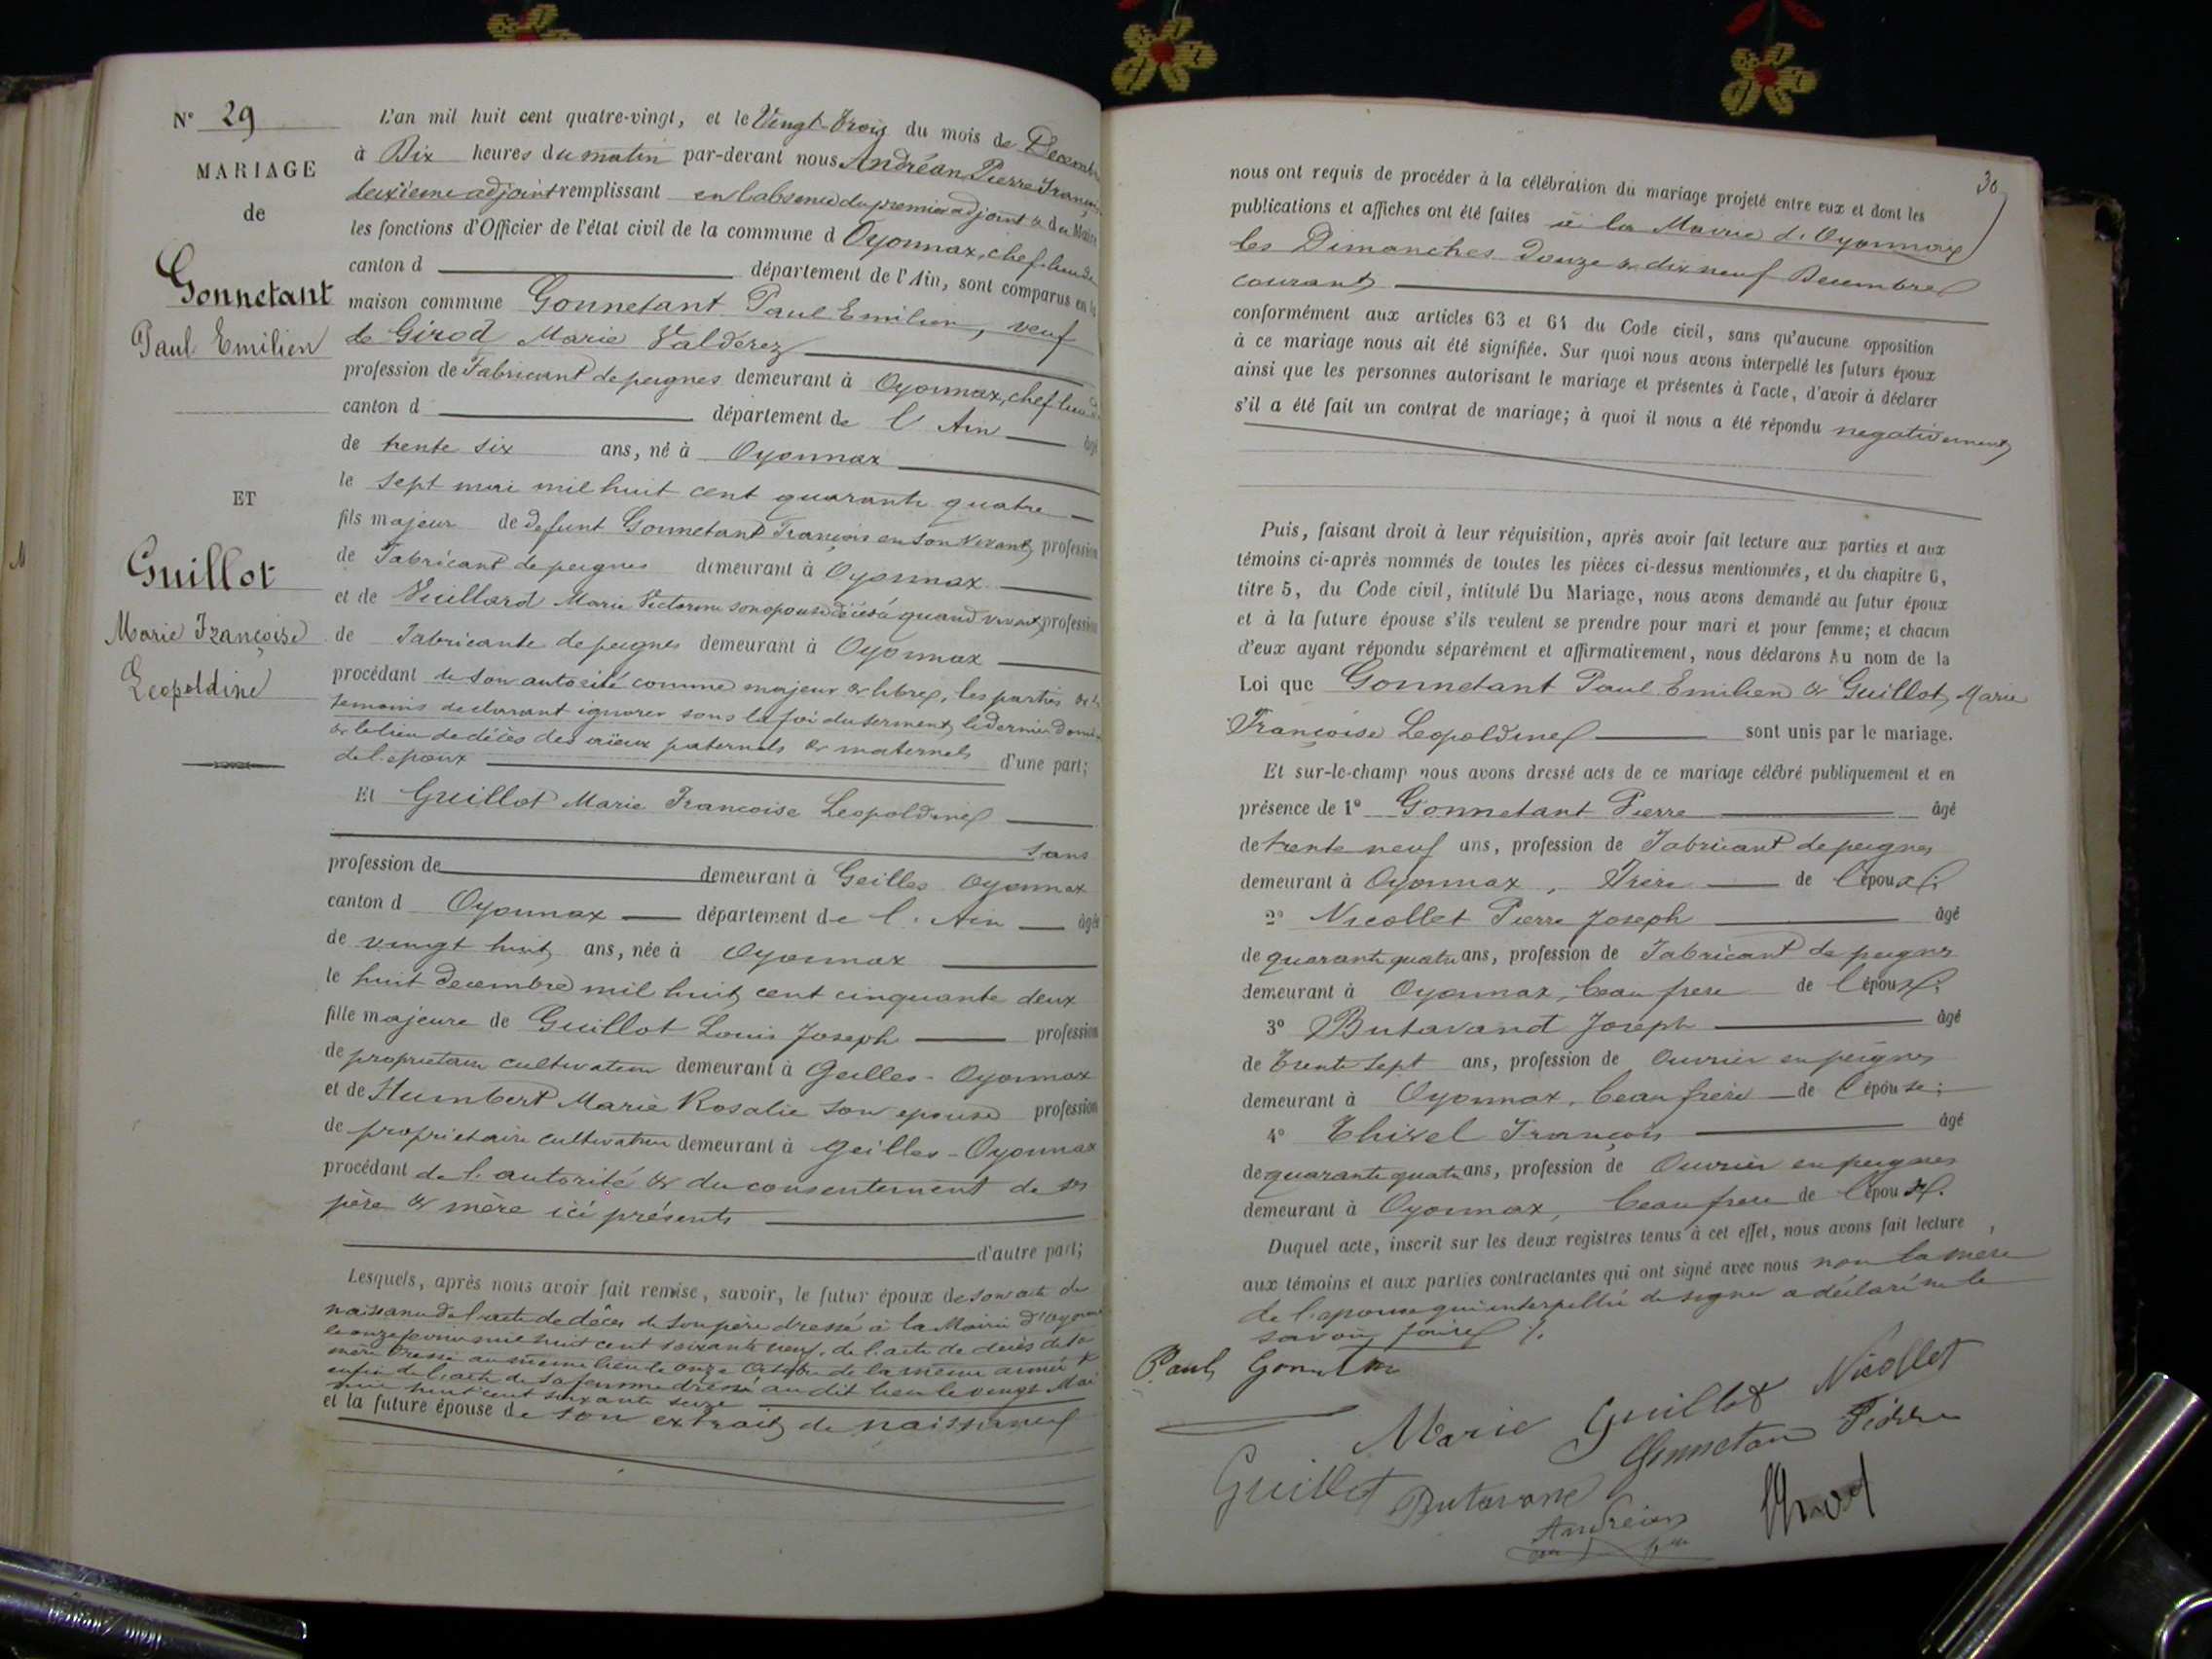 N° 29
MARIAGE
de
Gonnetant
Paul Emilien
ET
Guillot
Marie Françoise
Leopoldine
L'an mil huit cent quatre-vingt, et le Vingt-Trois du mois de Decembre
à Dix heures du matin par-devant nous Andréan Pierre François
deuxieme adjoint remplissant en l'absence du premier adjoint & du Maire
les fonctions d'Officier de l'état civil de la commune d Oyonnax, chef lieu de
canton d département de l'Ain, sont comparus en la
maison commune Gonnetant Paul Emilien, veuf
de Girod Marie Valdérez
profession de Fabricant de peignes demeurant à Oyonnax, chef lieu de
canton d département de l'Ain âgé
de trente six ans, né à Oyonnax
le sept mai mil huit cent quarante quatre
fils majeur de defunt Gonnetant François en son vivant profession
de Fabricant de peignes demeurant à Oyonnax
et de Vuillard Marie Victorine son epouse décédée quand vivait profession
de Fabricante de peignes demeurant à Oyonnax
procédant de son autorité comme majeur & libre, les parties & les
temoins declarant ignorer sous la foi du serment le dernier domicile
& le lieu de décès des aïeux paternels & maternels
de l'epoux d'une part;
Et Guillot Marie Françoise Leopoldine
sans
profession de demeurant à Geilles Oyonnax
canton d Oyonnax département de l'Ain âgée
de vingt huit ans, née à Oyonnax
le huit decembre mil huit cent cinquante deux
fille majeure de Guillot Louis Joseph profession
de proprietaire cultivateur demeurant à Geilles - Oyonnax
et de Humbert Marie Rosalie son epouse profession
de proprietaire cultivateur demeurant à Geilles - Oyonnax
procédant de l'autorité & du consentement de ses
père & mère ici présents
d'autre part;
Lesquels, après nous avoir fait remise, savoir, le futur époux de son acte de
naissance de l'acte de décès de son père dressé à la Mairie d'Oyonnax
le onze fevrier mil huit cent soixante neuf, de l'acte de décès de sa
mère dressé au même lieu le onze Octobre de la meme année &
enfin de l'acte de sa femme dressé au dit lieu le vingt Mai
mil huit cent soixante seize
et la future épouse de son extrait de naissance
30
nous ont requis de procéder à la célébration du mariage projeté entre eux et dont les
publications et affiches ont été faites à la Mairie d'Oyonnax
les Dimanches Douze & dix neuf Decembre
courant
conformément aux articles 63 et 64 du Code civil, sans qu'aucune opposition
à ce mariage nous ait été signifiée. Sur quoi nous avons interpellé les futurs époux
ainsi que les personnes autorisant le mariage et présentes à l'acte, d'avoir à déclarer
s'il a été fait un contrat de mariage; à quoi il nous a été répondu negativement
Puis, faisant droit à leur réquisition, après avoir fait lecture aux parties et aux
témoins ci-après nommés de toutes les pièces ci-dessus mentionnées, et du chapitre 6,
titre 5, du Code civil, intitulé Du Mariage, nous avons demandé au futur époux
et à la future épouse s'ils veulent se prendre pour mari et pour femme; et chacun
d'eux ayant répondu séparément et affirmativement, nous déclarons Au nom de la
Loi que Gonnetant Paul Emilien & Guillot Marie
Françoise Leopoldine sont unis par le mariage.
Et sur-le-champ nous avons dressé acts de ce mariage célébré publiquement et en
présence de 1° Gonnetant Pierre âgé
de trente neuf ans, profession de Fabricant de peignes
demeurant à Oyonnax, Frère de l'époux;
2° Nicollet Pierre Joseph âgé
de quarante quatre ans, profession de Fabricant de peignes
demeurant à Oyonnax, beau frere de l'époux;
3° Butavand Joseph âgé
de trente sept ans, profession de Ouvrier en peignes
demeurant à Oyonnax, beau frère de l'épouse;
4° Thivel François âgé
de quarante quatre ans, profession de Ouvrier en peignes
demeurant à Oyonnax, beau frere de l'époux.
Duquel acte, inscrit sur les deux registres tenus à cet effet, nous avons fait lecture,
aux témoins et aux parties contractantes qui ont signé avec nous non la mere
de l'epouse qui interpellée de signer a déclaré ne le
savoir faire
Paul
Marie Guillot Nicollet
Guillot Butavand Pierre
Andréan